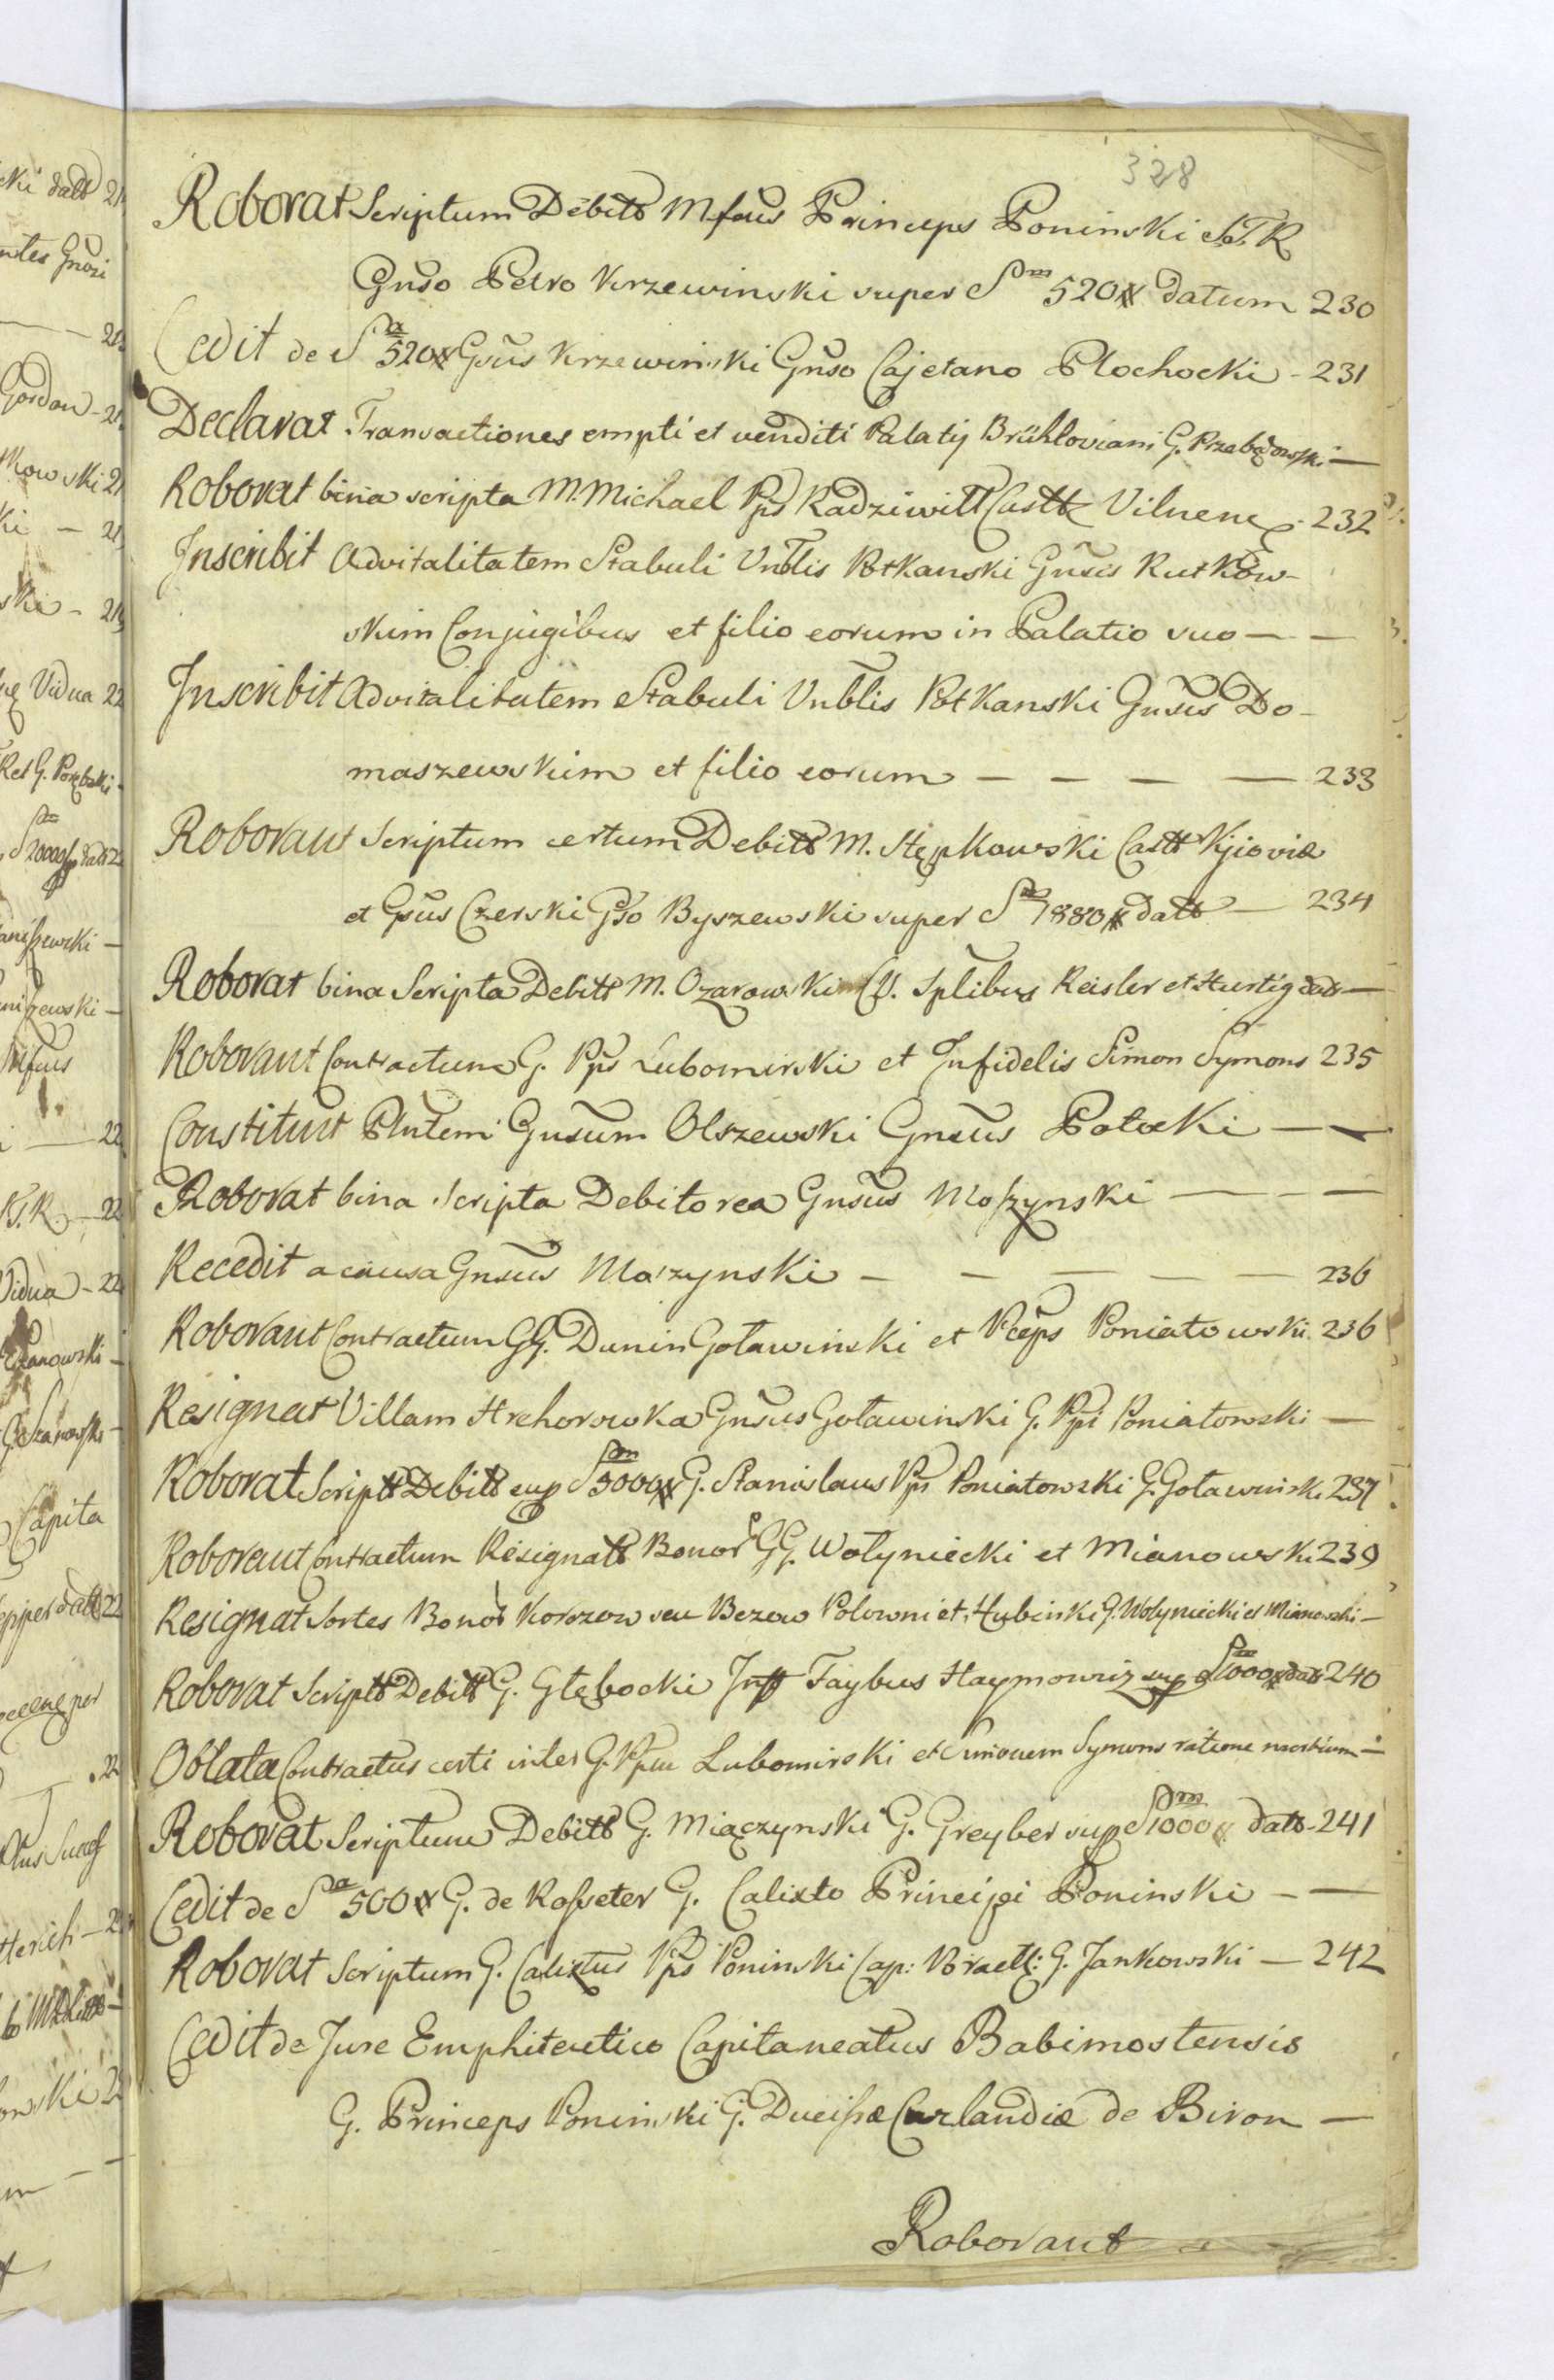 328
Roborat Scriptum Debitt Mfcus Princeps Poninski S.T.R
Gnso Petro Krzewinski super Sm 520# datum 230
Cedit de Sa 520# Gsus Krzewinski Gnso Cajetano Plochocki - 231
Declarat Transactiones empti et venditi Palatij Brühloviani G. Przebędowski —
Roborat bina scripta M. Michael Pps Radziwill Castt Vilnene - 232
Inscribit Advitalitatem Stabuli Vnblis Potkanski Gnsis Rutkow-
skim Conjugibus et filio eorum in Palatio suo — —
Inscribit Advitalitatem Stabuli Vnblis Potkanski Gnsis Do-
maszewskim et filio eorum — — — — 233
Roborant Scriptum certum Debitt M. Stępkowski Castt Kijoviæ
et Gsus Czerski Gso Byszewski super Sm 1880# datt — 234
Roborat bina Scripta Debitt M. Ozarowski Splibus Reisler et Hurtig datt —
Roborant Contractum G. Pps Lubomirski et Infidelis Simon Symons 235
Constituit Plntem Gnsum Olszewski Gnsus Potocki — —
Roborat bina Scripta Debitorea Gnsus Moszynski — — —
Recedit a causa Gnsus Moszynski — — — — — 236
Roborant Contractum GG. Dunin Goławinski et Pceps Poniatowski. 236
Resignat Villam Hrehorowka Gnsus Goławinski G. Ppi Poniatowski —
Roborat Scriptt Debitt sup Sm 3000# G. Stanislaus Pps Poniatowski G. Goławinski 237
Roborant Contractum Resignatt Bonor GG. Wołyniecki et Mianowski 239
Resignat Sortes Bonor Korozow seu Bezow Polowni et Hubinki G. Wolyniecki et Mianowski —
Roborat Scriptt Debitt G. Głębocki Inff Faybus Haymowicz sup Sm 1000# datt 240
Oblata Contractus certi inter G. Ppem Lubomirski et Simonem Symons ratione mercium —
Roborat Scriptum Debitt G. Miączynski G. Greyber sup Sm 1000# datt - 241
Cedit de Sa 500# G. de Rosseter G. Calixto Principi Poninski — —
Roborat Scriptum G. Calixtus Pps Poninski Cap: G. Jankowski — 242
Cedit de Jure Emphiteutico Capitaneatus Babimostensis
G. Princeps Poninski G. Ducissæ Curlandiæ de Biron —
Roborant